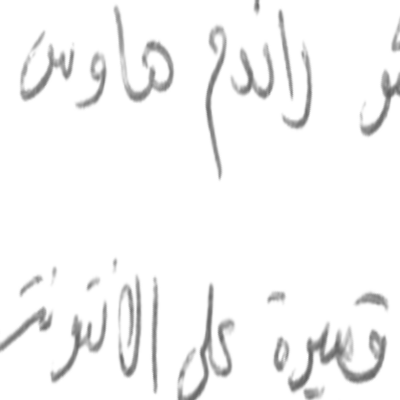 راندم هاوس
قصيرة على الانترنت